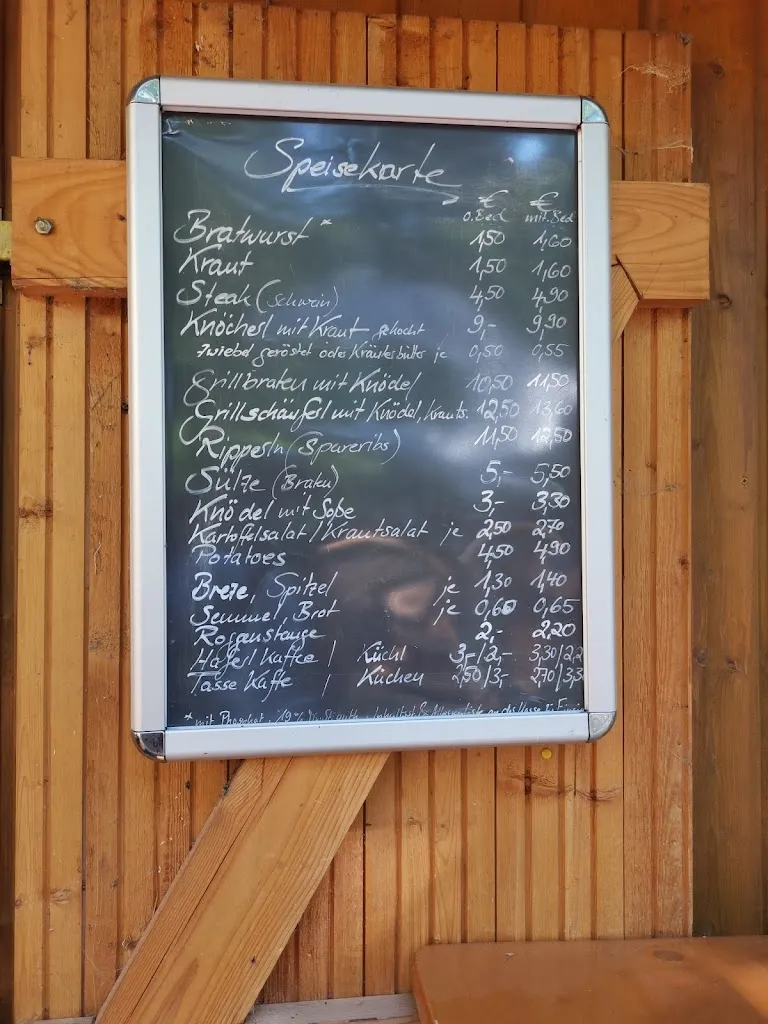 Speisekarte
€ €
o. Bed mit. Bed
Bratwurst * 1,50 1,60
Kraut 1,50 1,60
Steak (Schwein) 4,50 4,90
Knöcherl mit Kraut gekocht 9,- 9,90
Zwiebel geröstet oder Kräuterbutter je 0,50 0,55
Grillbraten mit Knödel 10,50 11,50
Grillschäuferl mit Knödel, Krauts. 12,50 13,60
Ripperln (Spareribs) 11,50 12,50
Sülze (Braku) 5,- 5,50
Knödel mit Soße 3,- 3,30
Kartoffelsalat / Krautsalat je 2,50 2,70
Potatoes 4,50 4,90
Breze, Spitzel je 1,30 1,40
Semmel, Brot je 0,60 0,65
Roggenstange 2,- 2,20
Haferl Kaffee / Küchl 3,-/2,- 3,30/2,2
Tasse Kaffe / Kuchen 2,50/3,- 2,70/3,3
* mit Phosphat 19% an der Kasse